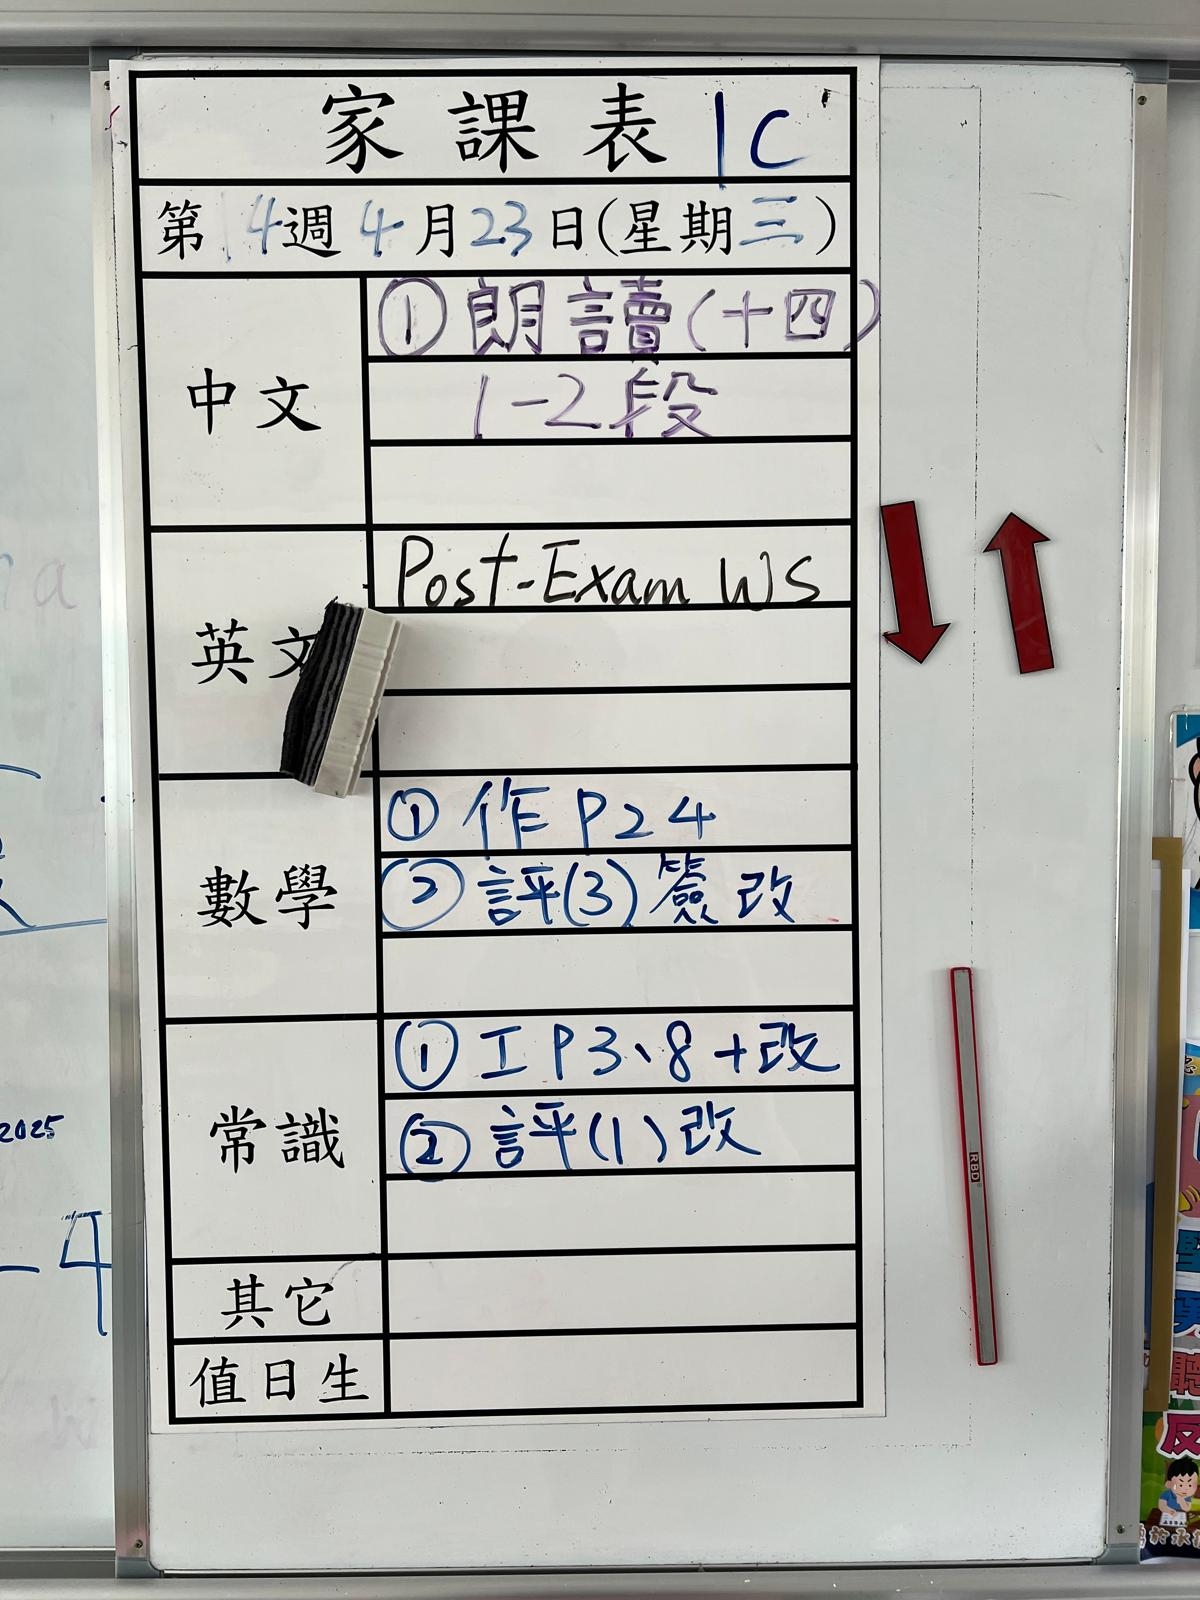 家課表 1C
第14週4月23日(星期三)
中文
①朗讀(十四)
1-2段
英文
Post-Exam WS
數學
①作P24
②評(3)簽改
常識
①工P3、8+改
②評(1)改
其它
值日生
2025
-4
RBD